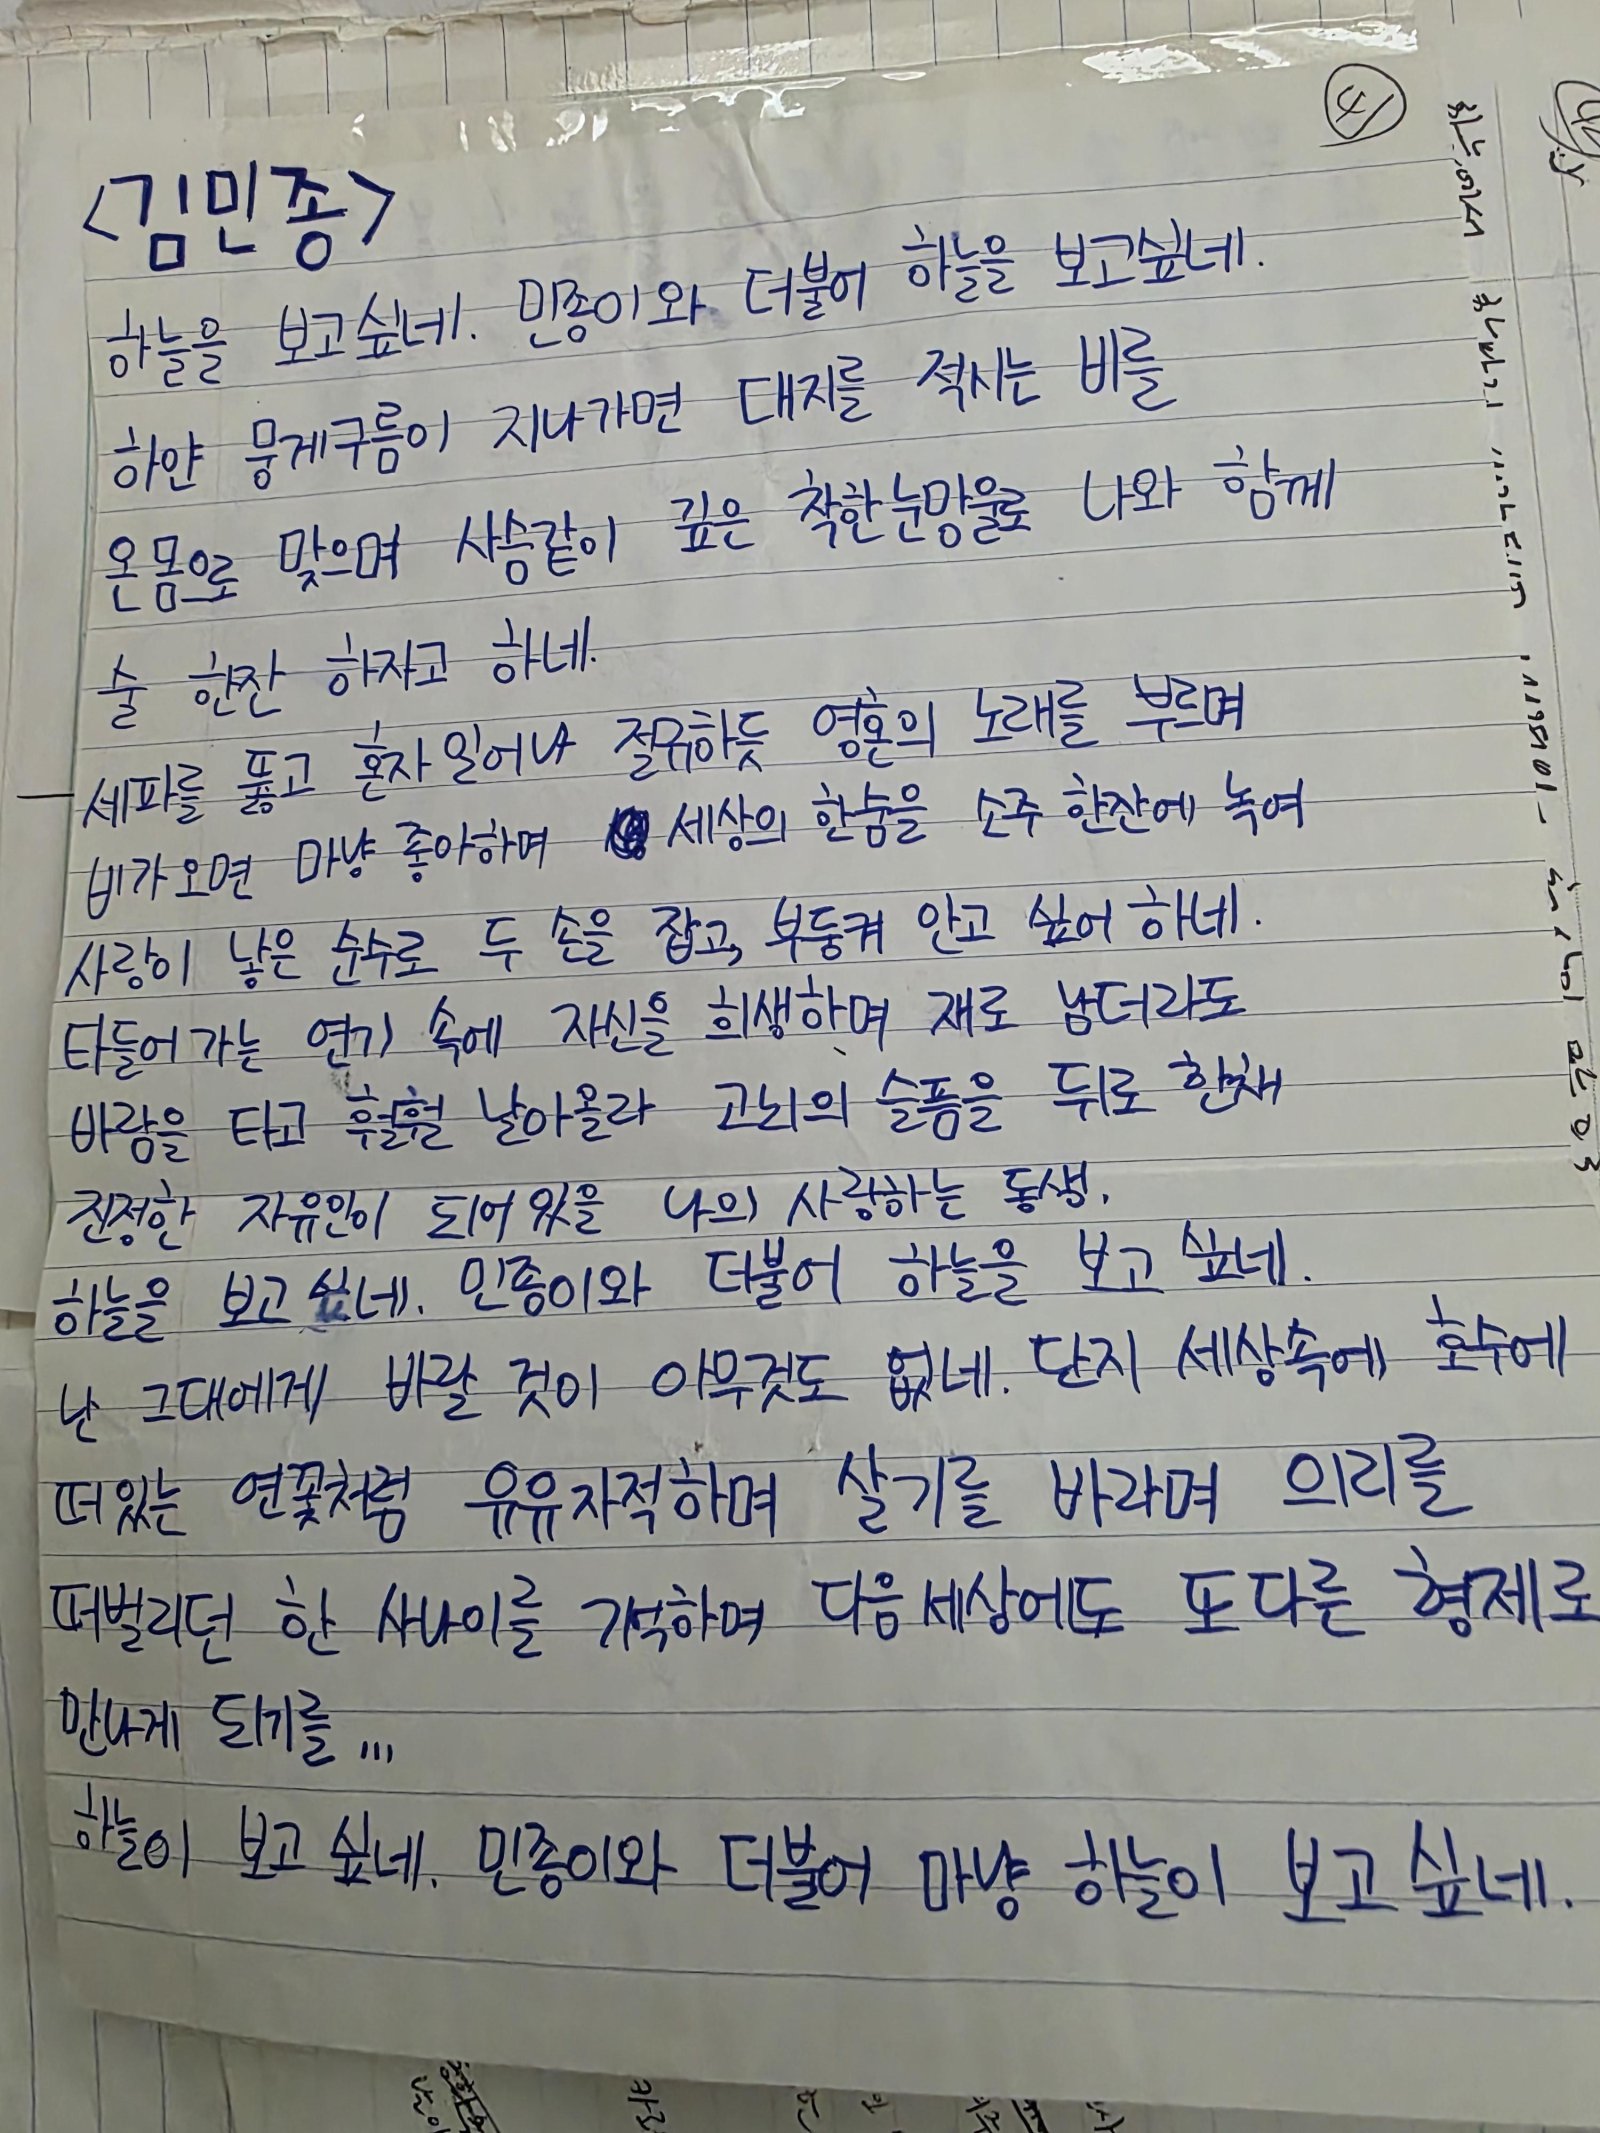 ④
<김민종>
하늘을 보고싶네. 민종이와 더불어 하늘을 보고싶네.
하얀 뭉게구름이 지나가면 대지를 적시는 비를
온몸으로 맞으며 사슴같이 깊은 착한눈망울로 나와 함께
술 한잔 하자고 하네.
세파를 뚫고 혼자일어나 절규하듯 영혼의 노래를 부르며
비가오면 마냥 좋아하며 세상의 한숨을 소주 한잔에 녹여
사랑이 낳은 순수로 두 손을 잡고, 부둥켜 안고 싶어 하네.
타들어가는 연기 속에 자신을 희생하며 재로 남더라도
바람을 타고 훨훨 날아올라 고뇌의 슬픔을 뒤로 한채
진정한 자유인이 되어있을 나의 사랑하는 동생.
하늘을 보고싶네. 민종이와 더불어 하늘을 보고 싶네.
난 그대에게 바랄 것이 아무것도 없네. 단지 세상속에 호수에
떠있는 연꽃처럼 유유자적하며 살기를 바라며 의리를
떠벌리던 한 사나이를 기억하며 다음세상에도 또다른 형제로
만나게 되기를...
하늘이 보고싶네. 민종이와 더불어 마냥 하늘이 보고싶네.